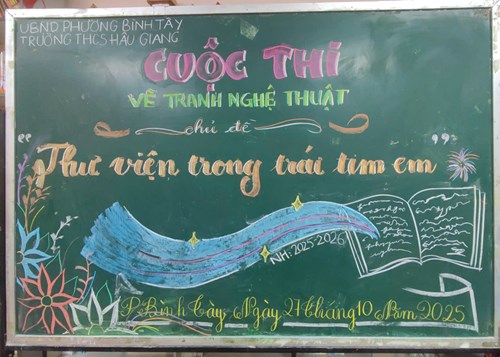 UBND PHƯỜNG BÌNH TÂY
TRƯỜNG THCS HẬU GIANG
CUỘC THI
VẼ TRANH NGHỆ THUẬT
chủ đề
"Thư viện trong trái tim em"
NH: 2025-2026
P. Bình Tây, Ngày 21 Tháng 10 Năm 2025